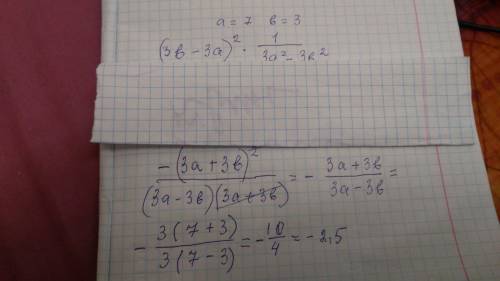 a = 7 в = 3
(3в - 3а)² · 1/(3а² - 3в²)
-(3а + 3в)²/((3а - 3в)(3а + 3в)) = - (3а + 3в)/(3а - 3в) =
- 3(7 + 3)/3(7 - 3) = - 10/4 = - 2,5